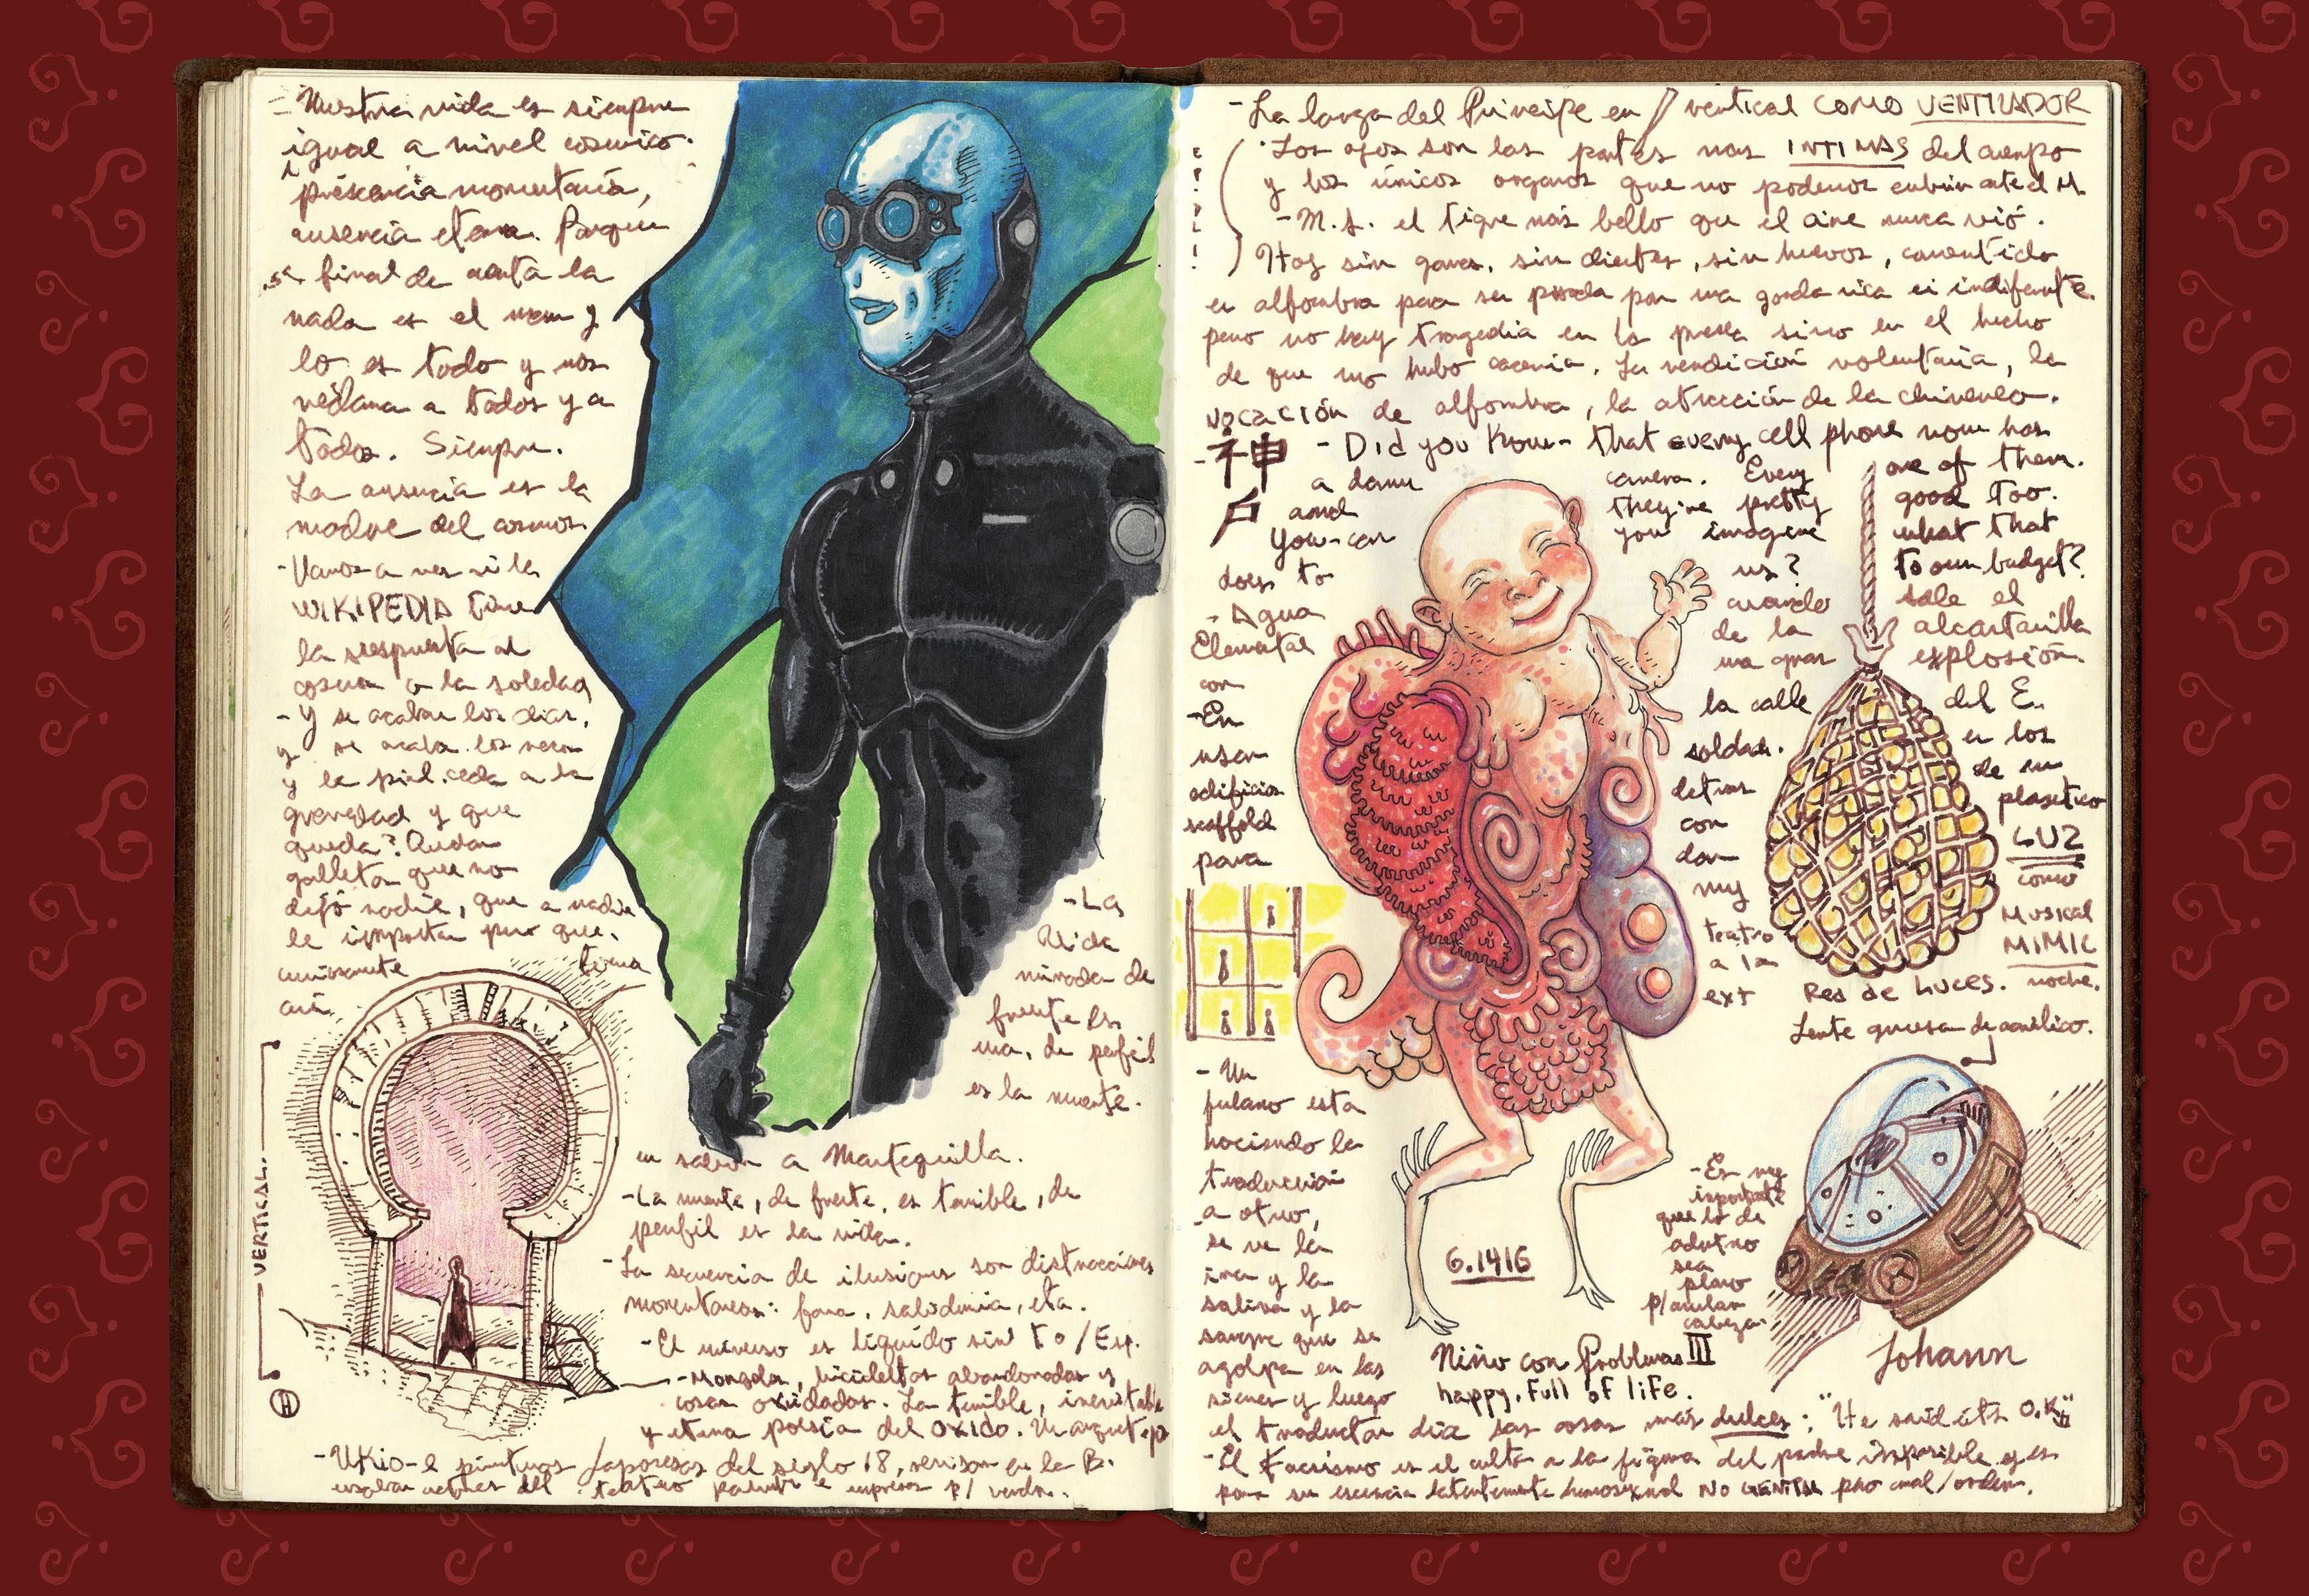 - Nuestra vida es siempre
igual a nivel cosmico.
presencia momentanía,
ausencia eterna. Porque
final de cuenta la
nada es el
lo es todo y nos
reclama a todos y a
todo. Siempre.
La ausencia es la
madre del cosmos.
- Vamos a ver si la
WIKIPEDIA tiene
la respuesta al
cosmos o la soledad
- Y se acaban los dias,
y se acaba los
y la piel ceda a la
gravedad y que
queda? Quedan
galleta que no
dejó nadie, que a nadie
le importa pero que,
tenia
VERTICAL.
- La
Vida
mirada de
frente es
una, de perfil
es la muerte.
un sabor a Mantequilla.
- La muerte, de frente, es terrible, de
perfil es la vida.
- La secuencia de ilusiones son distracciones
momentaneas: fama, sabiduria, eta.
- El universo es liquido sin T o / Esp.
- Mongolia, bicicletas abandonadas y
cosas oxidadas. La terrible, inevitable
y eterna poesia del OXIDO. Un arquetipo
- UKIO-e pinturas Japonesas del siglo 18, revisar en la B.
usaban actores del teatro
- La lanza del Principe en vertical COMO VENTILADOR
- Los ojos son las partes mas INTIMAS del cuerpo
y los únicos organos que no podemos cubrir ante el M.
- M.S. el tigre más bello que el cine nunca vió.
Hoy sin garras, sin dientes, sin huevos, convertido
en alfombra para ser pisada por una gorda rica e indiferente.
pero no hay tragedia en la presa sino en el hecho
de que no hubo caceria. La rendición voluntaria, la
vocación de alfombra, la atracción de la chimenea.
神戸
- Did you Know- that every cell phone now has
a damn camera. Every one of them.
and they're pretty good too.
You can you imagine what that
does to us? to our budget?
- Agua cuando sale el
Elemental de la alcantarilla
con una gran explosión.
- En la calle del E.
usan soldad. en los
edificios detras de un
scaffold con plastico
para dar LUZ
muy como
teatro MUSICAL
a la MIMIC
ext noche.
Red de Luces.
Lente gruesa de acrilico.
- Un
fulano esta
haciendo la
traducción
a otro,
se ve la
ira y la
saliva y la
sangre que se
agolpa en las
sienes y luego
el traductor dice las cosas más dulces: "He said it's O.K."
G.1416
- Es muy
importante
que lo de
adentro
sea
plano
p/anular
cabeza.
Johann
Niño con Problemas III
happy. Full of life.
- El Fascismo es el culto a la figura del padre imposible y es
por su escencia latentemente homosexual NO GENITAL pero anal/orden.